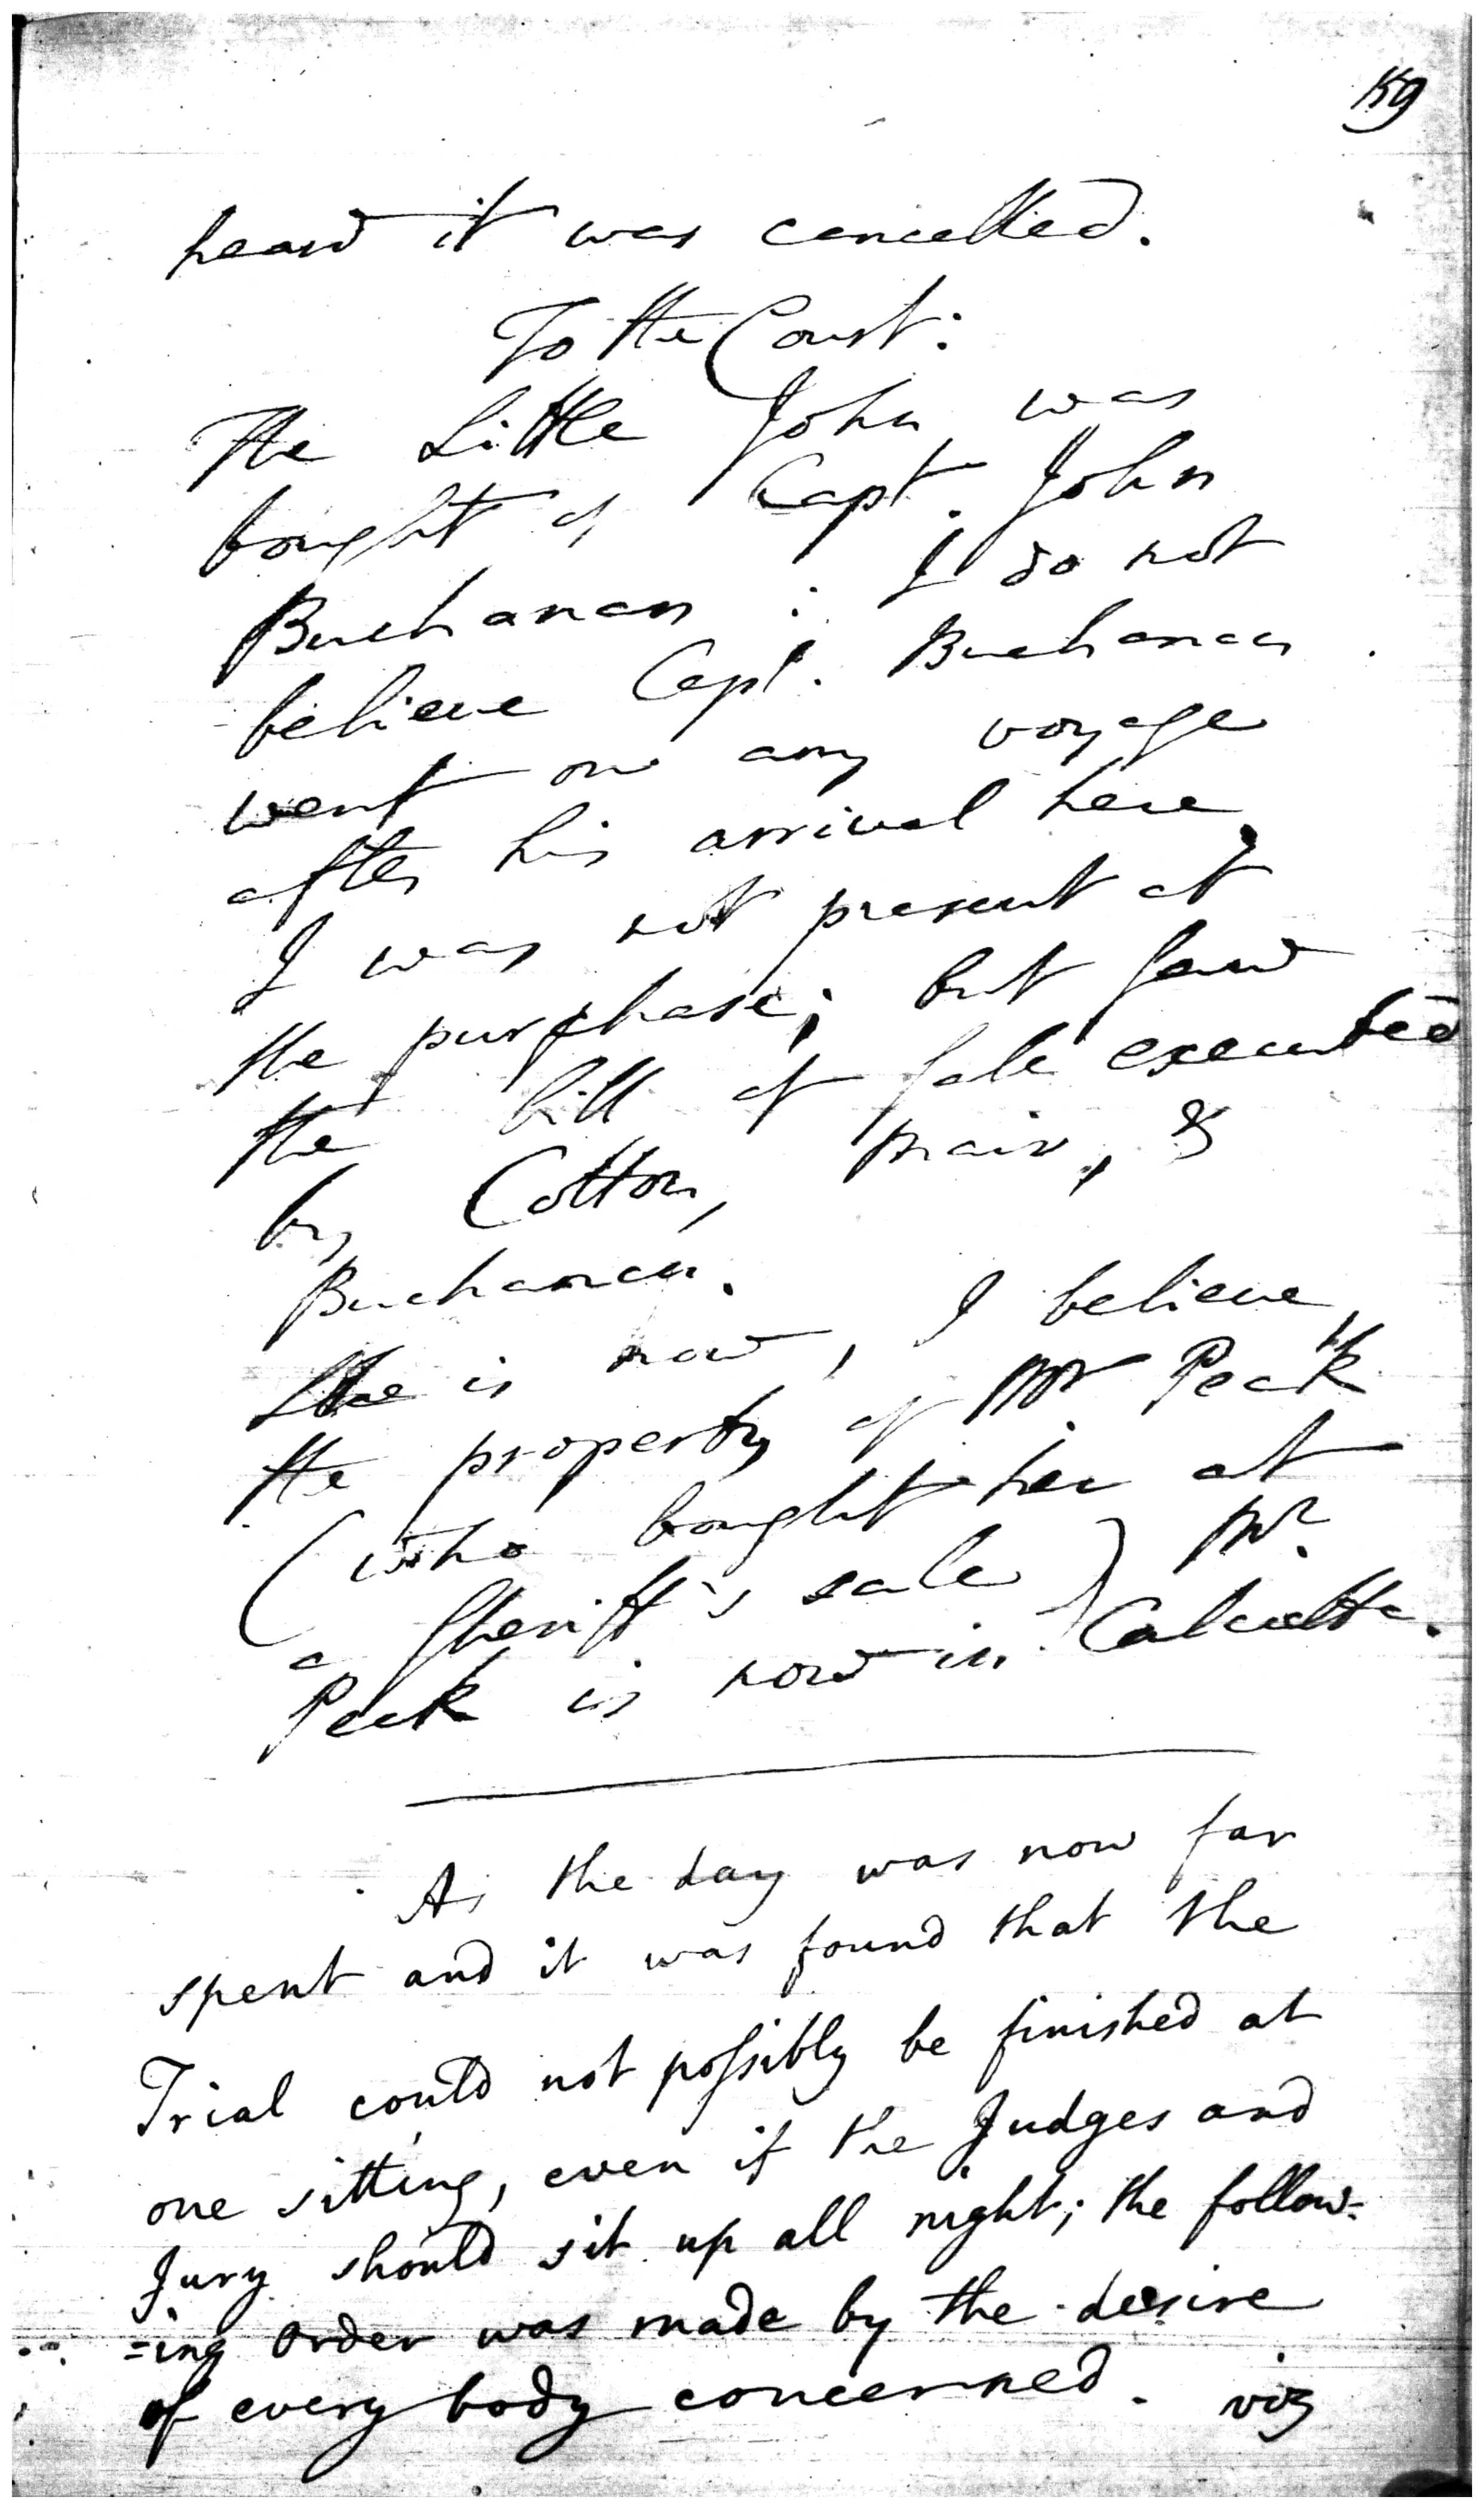 159
heard it was cancelled.
To the Court:
The Little John, was
bought of Capt. John
Buchanan: I do not
believe Capt. Buchanan
went on any voyage
after his arrival here.
I was not present at
the purchase; but saw
the bill of sale executed
by Cotton, Mair, &
Buchanan.
She is now, I believe,
the property of Mr Peck
(who bought her at
a Sheriff's sale) Mr.
Peck is now in Calcutta.
As the day was now far
spent and it was found that the
Trial could not possibly be finished at
one sitting, even if the Judges and
Jury should sit up all night; the follow=
=ing order was made by the desire
of every body concerned. viz